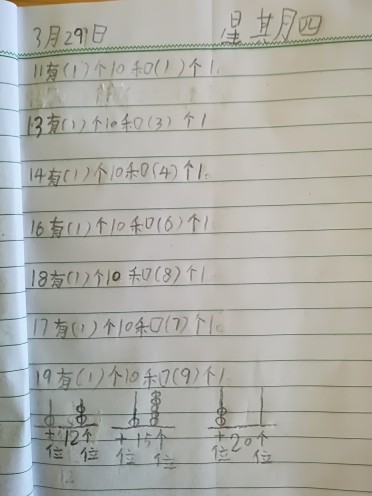 3月29日 星期四
11有(1)个10和(1)个1.
13有(1)个10和(3)个1
14有(1)个10和(4)个1.
16有(1)个10和(6)个1
18有(1)个10和(8)个1
17有(1)个10和(7)个1.
19有(1)个10和(9)个1
十12个 十15个 十20个
位 位 位 位 位 位